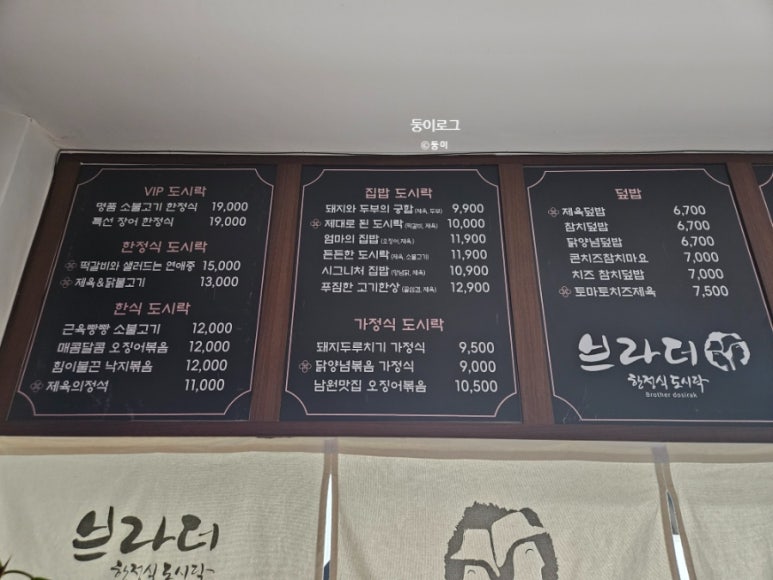 둥이로그
©둥이
VIP 도시락
명품 소불고기 한정식 19,000
특선 장어 한정식 19,000
한정식 도시락
떡갈비와 샐러드는 연애중 15,000
제육&닭불고기 13,000
한식 도시락
근육빵빵 소불고기 12,000
매콤달콤 오징어볶음 12,000
힘이불끈 낙지볶음 12,000
제육의정석 11,000
집밥 도시락
돼지와 두부의 궁합 (제육, 두부) 9,900
제대로 된 도시락 (떡갈비, 제육) 10,000
엄마의 집밥 (오징어, 제육) 11,900
든든한 도시락 (제육, 소불고기) 11,900
시그니처 집밥 (양념닭, 제육) 10,900
푸짐한 고기한상 (꿀삼겹, 제육) 12,900
가정식 도시락
돼지두루치기 가정식 9,500
닭양념볶음 가정식 9,000
남원맛집 오징어볶음 10,500
덮밥
제육덮밥 6,700
참치덮밥 6,700
닭양념덮밥 6,700
콘치즈참치마요 7,000
치즈 참치덮밥 7,000
토마토치즈제육 7,500
브라더
한정식 도시락
Brother dosirak
브라더
한정식 도시락